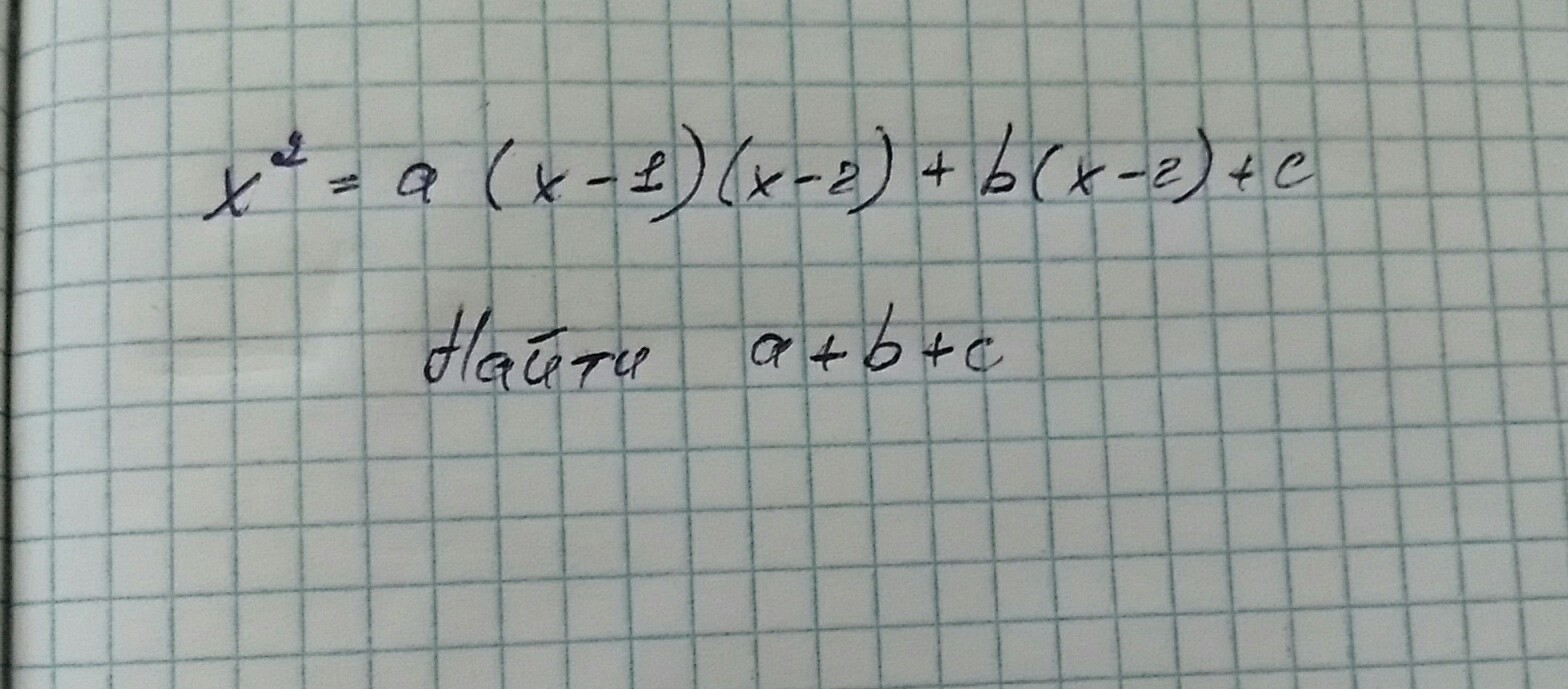 x² = a (x-1)(x-2) + b(x-2) + c
Найти a + b + c